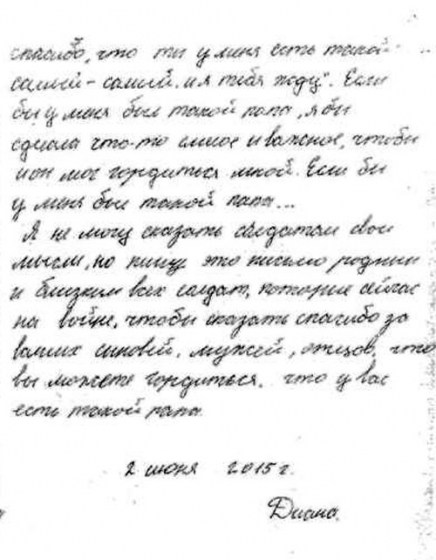 спасибо, что ты у меня есть такой-
самый-самый. и я тебя жду". Если
бы у меня был такой папа, я бы
сделала что-то самое и важное, чтобы
и он мог гордиться мной. Если бы
у меня был такой папа...
Я не могу сказать солдатам свои
мысли, но пишу это письмо родным
и близким всех солдат, которые сейчас
на войне, чтобы сказать спасибо за
ваших сыновей, мужей, отцов, что
вы можете гордиться, что у вас
есть такой папа.
2 июня 2015 г.
Диана.